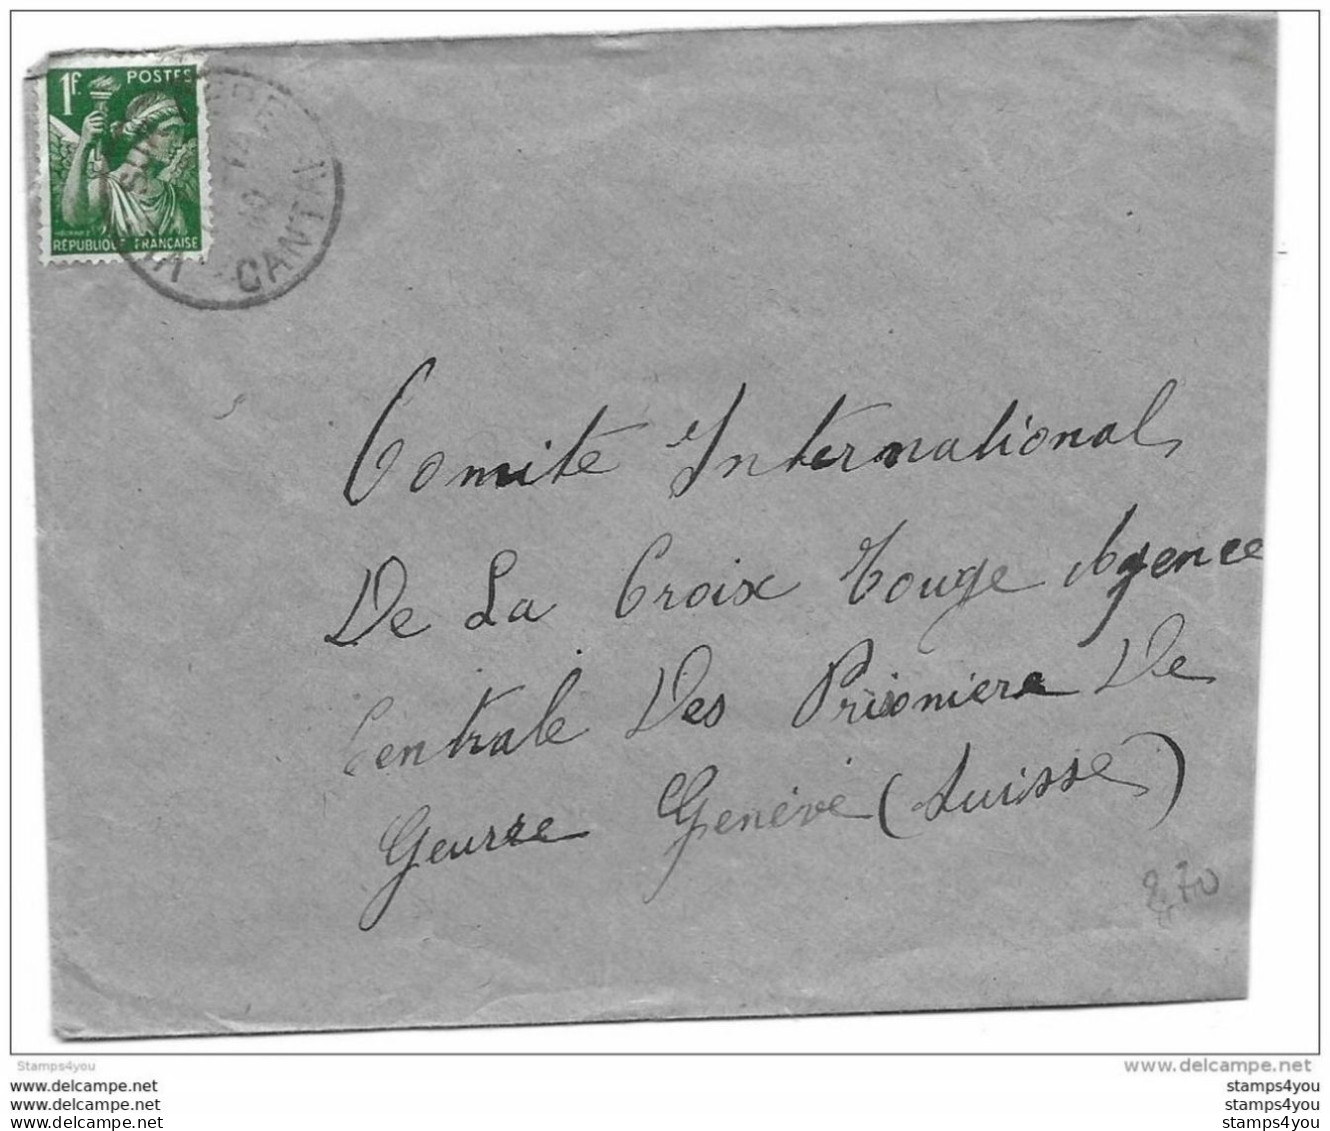 1f. POSTES
RÉPUBLIQUE FRANÇAISE
SUR CERE
14
40
CANTAL
Comite International
De La Croix Rouge Agence
Centrale Des Prisoniere De
Geurre Genéve (Suisse)
2,70
Stamps4you
www.delcampe.net
www.delcampe.net
stamps4you
www.delcampe.net
stamps4you
www.delcampe.net
stamps4you